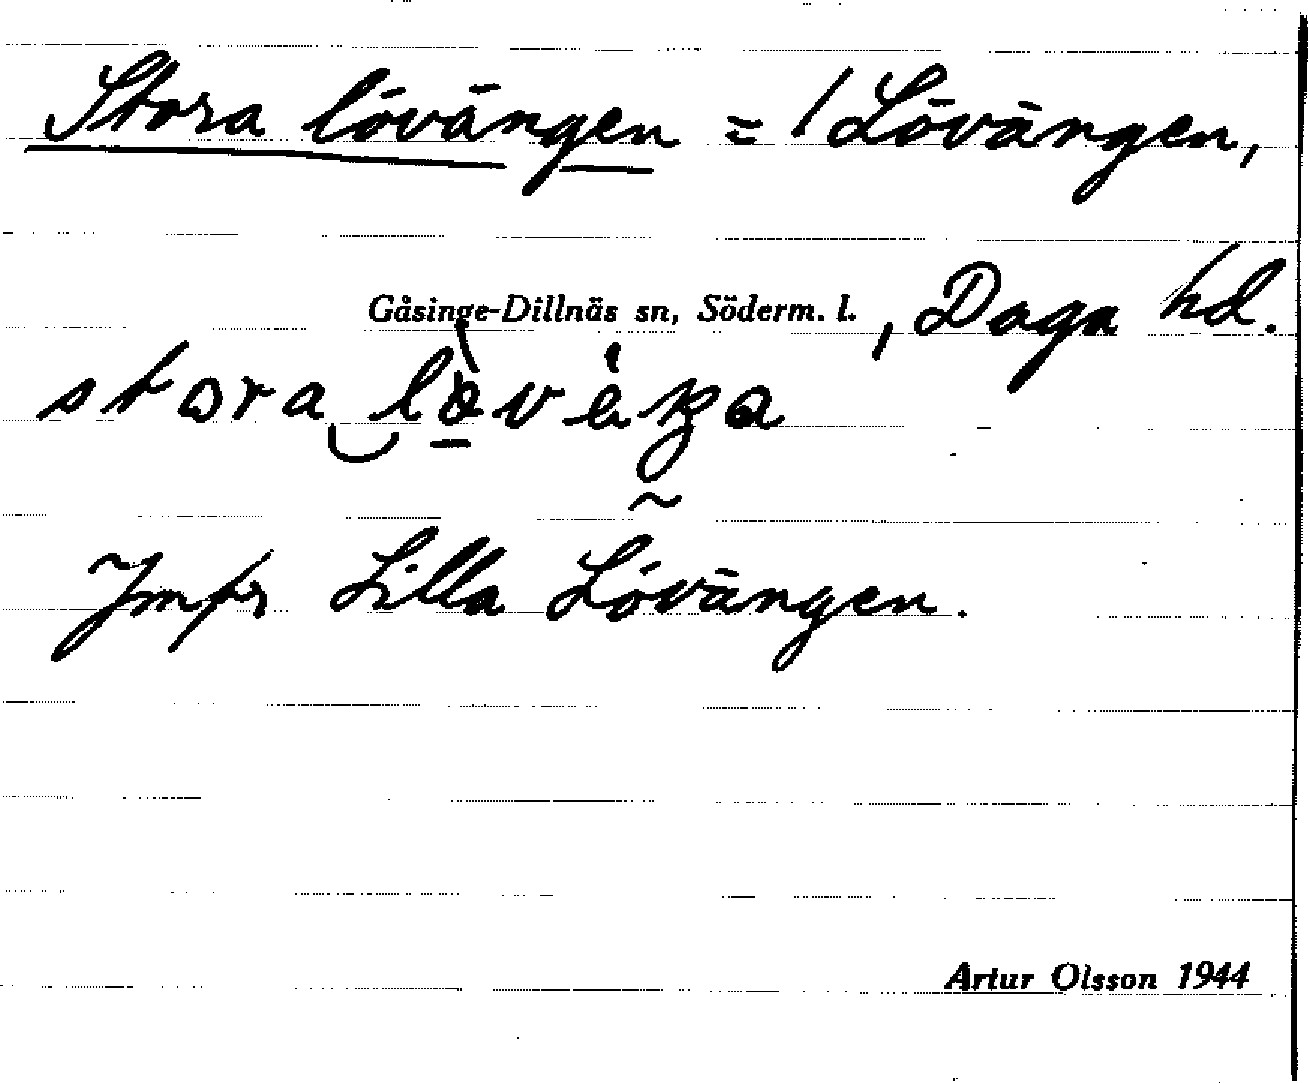 Stora lövängen = / Lövängen,
Gåsinge-Dillnäs sn, Söderm. l., Daga hd.
Jmfr Lilla Lövängen.
Artur Olsson 1944